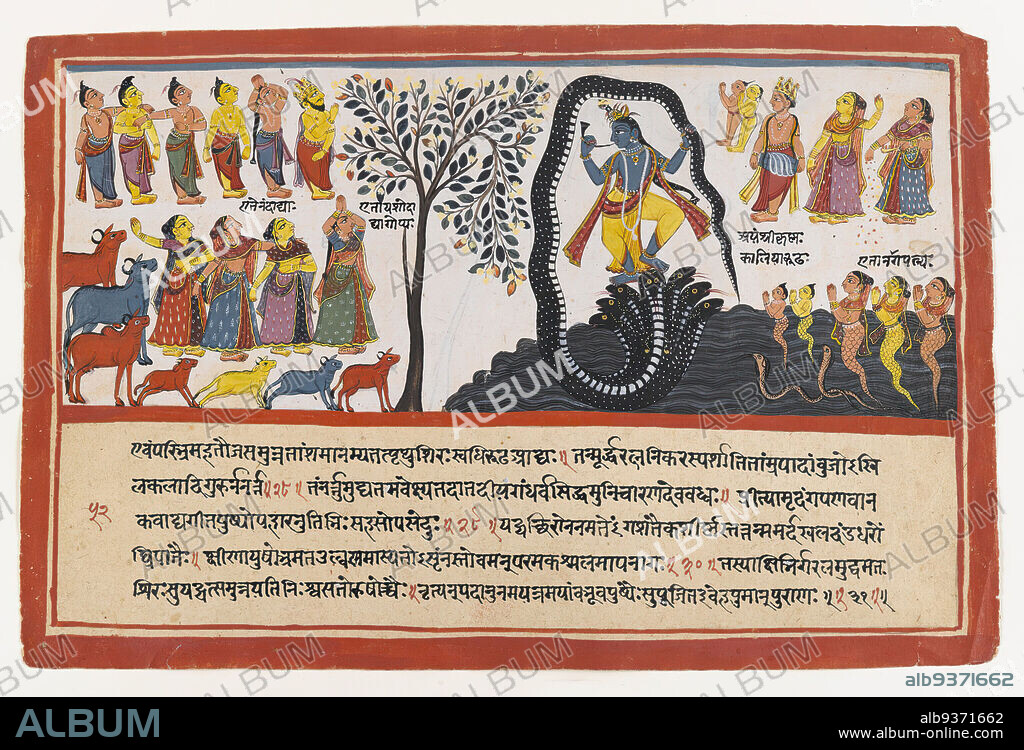 एतेनंदाद्याः
एतायशोदा
द्यागोप्यः
अयंश्रीकृष्णः
कालियारूढः
एतानागपत्न्यः
एवंपरिभ्रमहतौजसमुन्नतांशमानम्यतत्पृथुशिरःस्वधिरूढआद्यः॥ तन्मूर्द्धरत्ननिकरस्पर्शातितांम्रपादांबुजोऽखि
लकलादिगुरुर्ननर्त्त॥२८॥ तंनर्त्तुमुद्यतमवेक्ष्यतदातदीयगंधर्वसिद्धमुनिचारणदेववध्वः॥ प्रीत्यामृदंगपणवान
५२
कवाद्यगीतपुष्पोपहारनुतिभिः सहसोपसेदुः॥२९॥ यद्यच्छिरोननमतेऽंगशतैकशीर्ष्णस्तत्तन्ममर्दखलदंडधरों
घ्रिपातैः॥ क्षीणायुषोभ्रमतउल्बणमास्यतोऽसृंनस्तोवमन्परमकश्मलमापनागः॥३०॥ तस्याक्षिभिर्गरलमुद्वमतः
शिरःसुयद्यत्समुन्नमतिनिःश्वसतोरुषोच्चैः॥ नृत्यन्पदानुनमयन्दमयांबभूवपुष्पैःसुपूजितइवेहपुमान्पुराणः॥३१॥
ALBUM
alb9371662
ALBUM
alb9371662
www.album-online.com